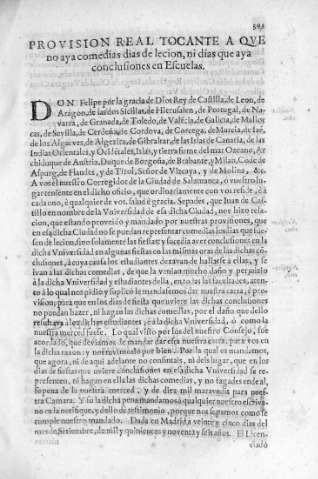 PROVISION REAL TOCANTE A QVE
no aya comedias dias de lecion, ni dias que aya
conclusiones en Escuelas.
DON Felipe por la gracia de Dios Rey de Castilla, de Leon, de
Aragon, de las dos Sicilias, de Hierusalen, de Portugal, de Na
varra, de Granada, de Toledo, de Valécia, de Galicia, de Mallor
cas, de Sevilla, de Cerdeña, de Cordova, de Corcega, de Murcia, de Iaé,
de los Algarves, de Algezira, de Gibraltar, de las Islas de Canaria, de las
Indias Orientales, y Occidétales, Islas, y tierra firme del mar Oceano, Ar
chiduque de Austria, Duque de Borgoña, de Brabante, y Milan, Conde de
Aspurg, de Flandes, y de Tirol, Señor de Vizcaya, y de Molina, &c.
A vos el nuestro Corregidor de la Ciudad de Salamanca, o vuestro lu
garteniente en el dicho oficio, que ordinariamente con vos reside, é a
cada uno, é qualquier de vos, salud é gracia. Sepades, que Juan de Cas
tillo en nombre de la Universidad de esa dicha Ciudad, nos hizo rela
cion, que estando proveido y mandado por nuestras provisiones, que
en esa dicha Ciudad no se puedan representar comedias los dias que fue
sen de lecion, sino solamente las fiestas y sucedia aver conclusiones en la
dicha Vniversidad en algunas fiestas en las mismas oras de las dichas có
clusiones, á cuya causa los estudiantes dexavan de hallarse á ellas, y se
ivan a las dichas comedias, de que se venian mucho daño y perjuizio
à la dicha Vniversidad y estudiantes della,
to á lo qual nos pidio y suplicó le mandasemos dar nuestra carta, é pro
vision, para que en los dias de fiesta que uviere las dichas conclusiones
no puedan hazer, ni hagan las dichas comedias, por el daño que dello
resultava a los dichos estudiantes, é à la dicha Vniversidad, ó como la
nuestra merced fuese. Lo qual visto por los del nuestro Consejo, fue
acordado, que deviamos de mandar dar esta nuestra carta, para vos en
la dicha razon, y nos tuvimoslo por bien. Por la qual os mandamos,
que agora, ni de aqui adelante no consintais, ni deis lugar, que en los
dias de fiestas que uviere conclusiones en esa dicha Vniversidad se re
presenten, ni hagan en ella las dichas comedias, y no fagades ende al,
so pena de la nuestra merced, y de diez mil maravedis para nues
tra Camara. Y so la dicha pena mandamos á qualquier nuestro escriva
no os la notifique, y dello dé testimonio, porque nos sepamos como se
cumple nuestro mandado. Dada en Madrid à veinte y cinco dias del
mes de Setiembre, de mil y quinientos y noventa y seis años. El Licen
ciado